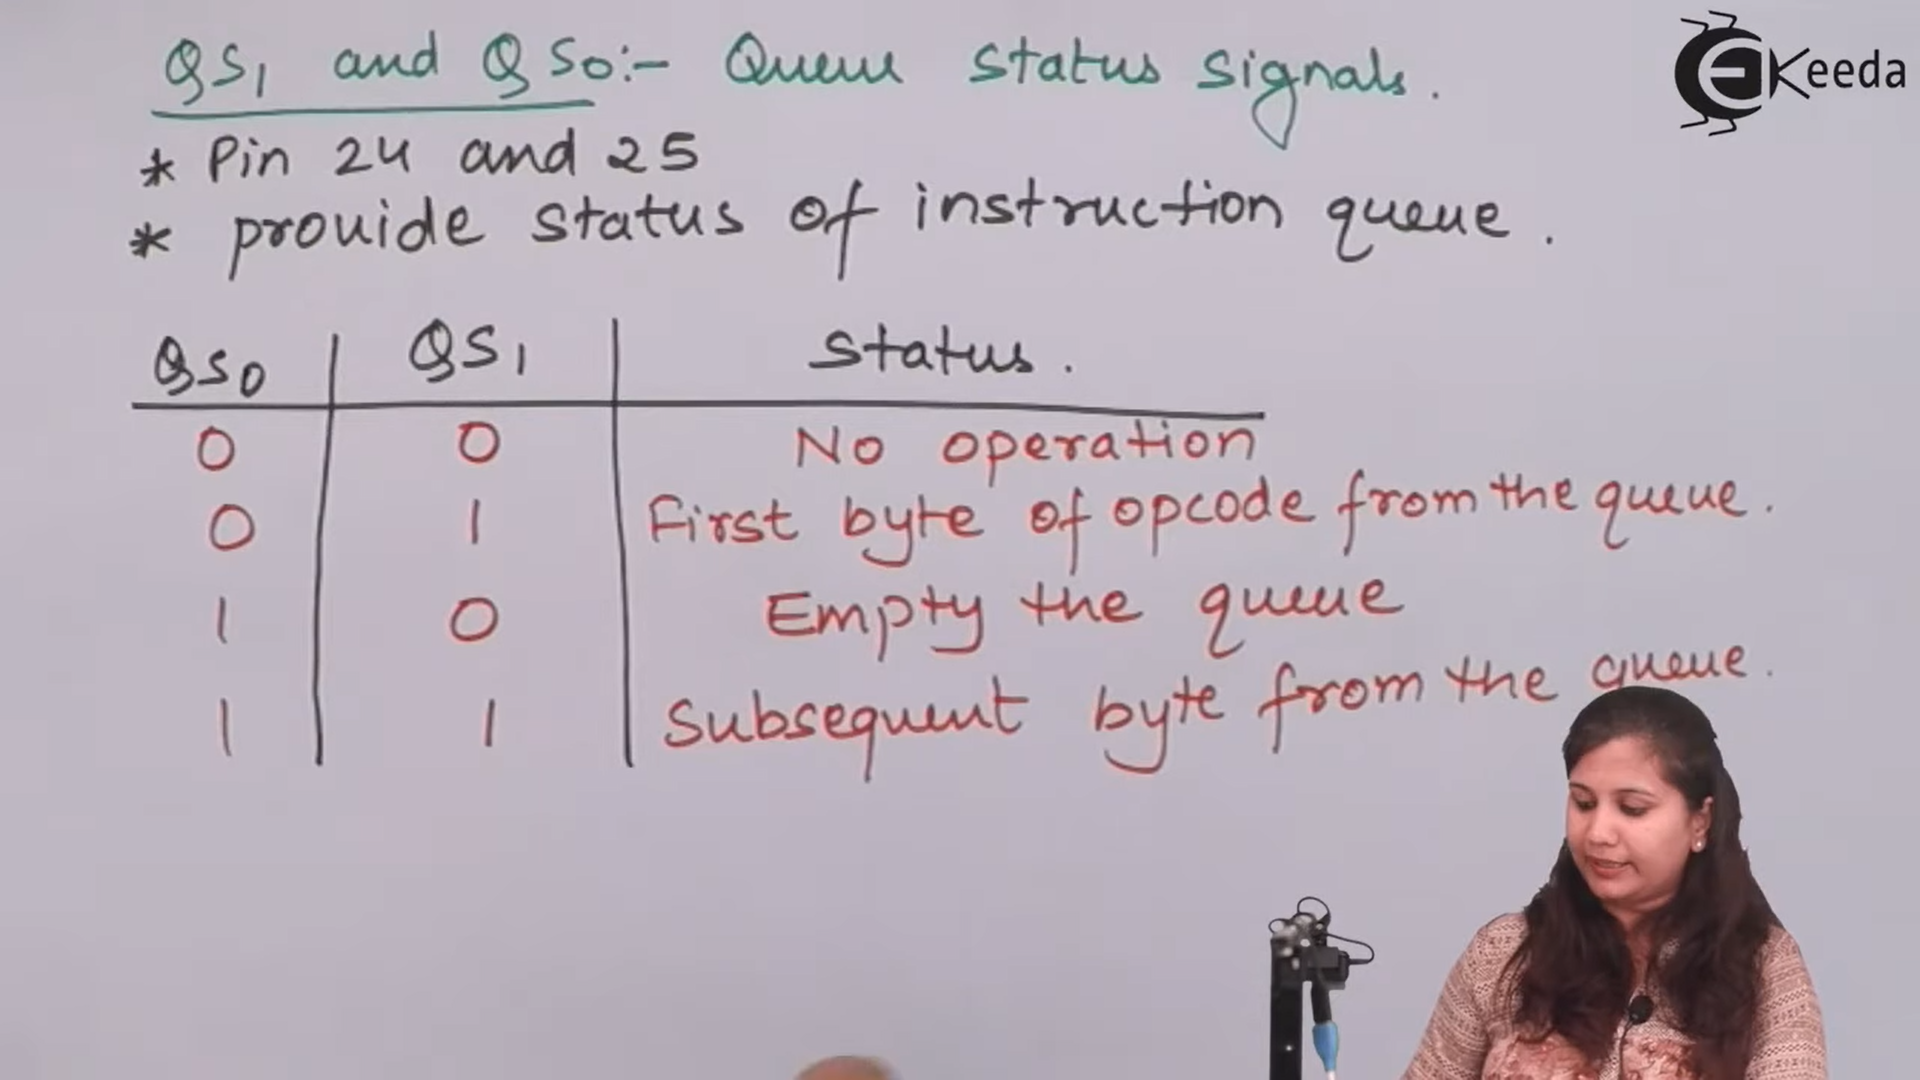 QS1 and QS0:- Queue status signals.
EKeeda
* Pin 24 and 25
* provide status of instruction queue.
QS0 QS1 status.
0 0 No operation
0 1 First byte of opcode from the queue.
1 0 Empty the queue
1 1 Subsequent byte from the queue.